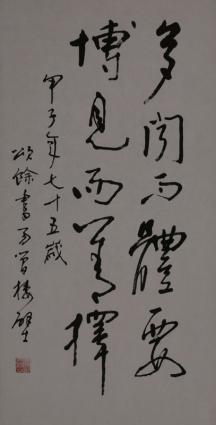 多聞而體要
博見而善擇
甲子年七十五歲
頌餘書於樓